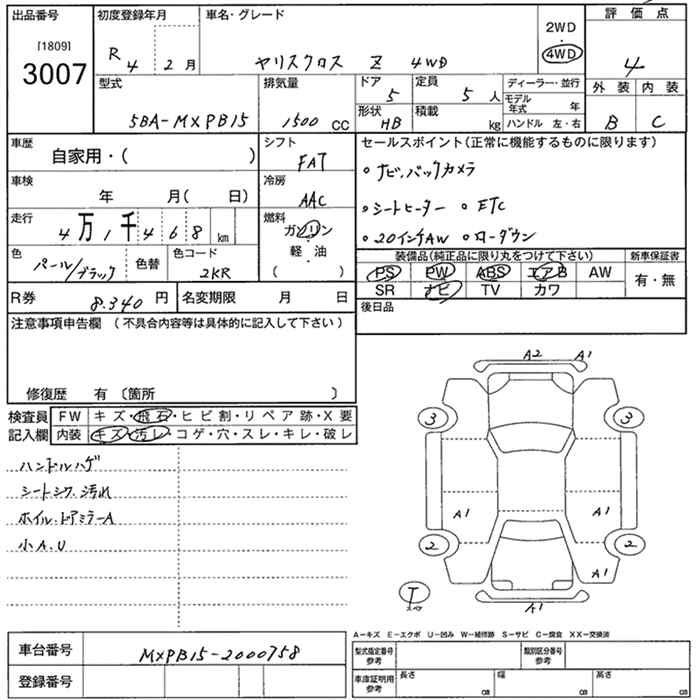 出品番号
[1809]
3007
初度登録年月
R 4 2 月
車名・グレード
ヤリスクロス Z 4WD
2WD
・
4WD
評価点
4
型式
5BA-MXPB15
排気量
1500 CC
ドア
5
形状
HB
定員
5 人
積載
kg
ディーラー・並行
モデル年式 年
ハンドル 左・右
外装 内装
B C
車歴
自家用・( )
シフト
FAT
セールスポイント(正常に機能するものに限ります)
○ ナビ、バックカメラ
○ シートヒーター ○ ETC
○ 20インチAW ○ ローダウン
車検
年 月( 日)
冷房
AAC
走行
4万1千468 km
燃料
ガソリン
軽・油
( )
色
パール/ブラック
色替
色コード
2KR
装備品(純正品に限り丸をつけて下さい)
PS PW ABS エアB AW
SR ナビ TV カワ
新車保証書
有・無
R券
8.340 円
名変期限 月 日
後日品
注意事項申告欄(不具合内容等は具体的に記入して下さい)
修復歴 有 〔箇所 〕
検査員記入欄
FW キズ・飛石・ヒビ割・リペア跡・X要
内装 キズ・汚レ・コゲ・穴・スレ・キレ・破レ
ハンドルハゲ
シートシワ、汚れ
ホイル、ドアミラーA
小A.U
A2 A1
3 3
A1 A1
2 2
A1
T
スペア
A1
A-キズ E-エクボ U-凹み W-補修跡 S-サビ C-腐食 XX-交換済
車台番号
MXPB15-2000758
登録番号
型式指定番号 参考
類別区分番号 参考
車庫証明用 参考
長さ cm
幅 cm
高さ cm